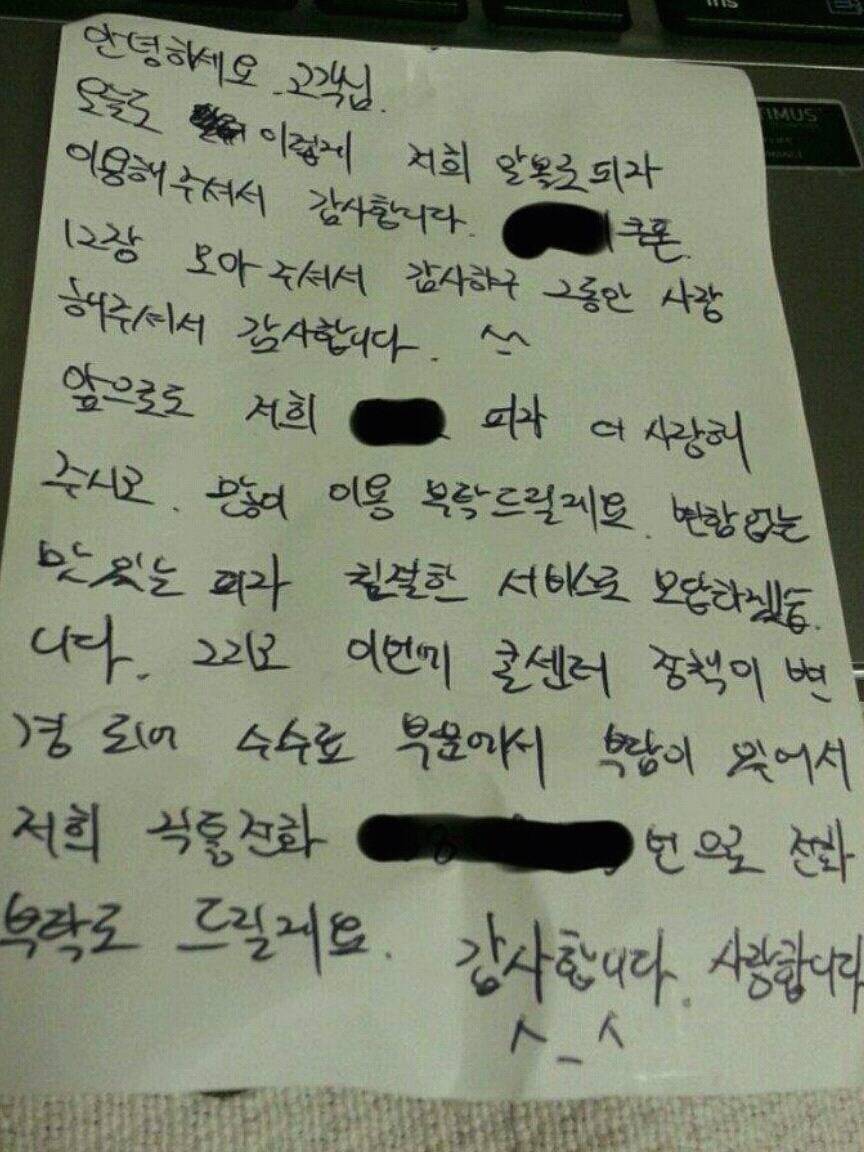 ins
TIMUS
안녕하세요. 고객님.
오늘도 이렇게 저희 알볼로 피자
이용해 주셔서 감사합니다. 쿠폰.
12장 모아 주셔서 감사하구 그동안 사랑
해주셔서 감사합니다. ^^
앞으로도 저희 피자 더 사랑해
주시고. 많이 이용 부탁드릴게요. 변함없는
맛있는 피자 친절한 서비스로 보답하겠습
니다. 그리고 이번에 콜센터 정책이 변
경 되어 수수료 부문에서 부담이 있어서
저희 직통전화 번으로 전화
부탁도 드릴게요. 감사합니다. 사랑합니다
^_^